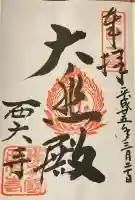 奉拝
平成五年三月二十日
大黒殿
西大寺